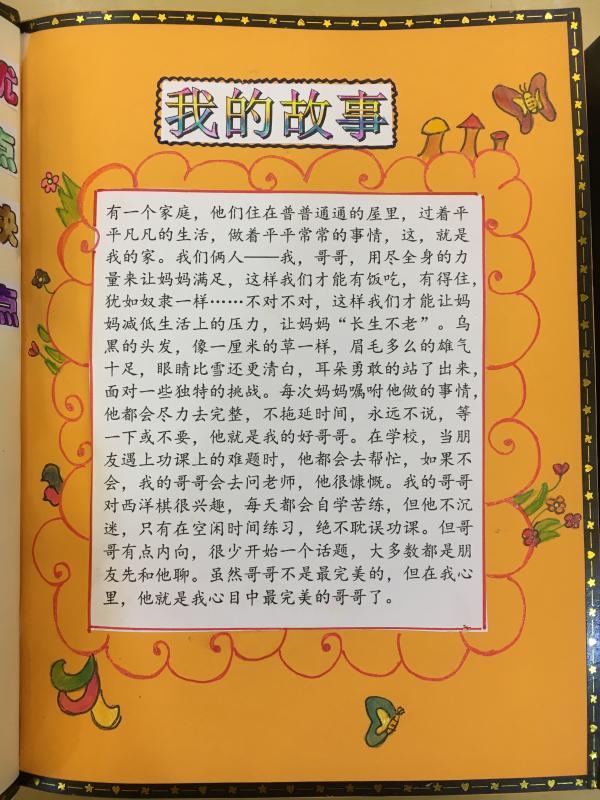 优
点
缺
点
我的故事
有一个家庭，他们住在普普通通的屋里，过着平
平凡凡的生活，做着平平常常的事情，这，就是
我的家。我们俩人——我，哥哥，用尽全身的力
量来让妈妈满足，这样我们才能有饭吃，有得住，
犹如奴隶一样……不对不对，这样我们才能让妈
妈减低生活上的压力，让妈妈“长生不老”。乌
黑的头发，像一厘米的草一样，眉毛多么的雄气
十足，眼睛比雪还更清白，耳朵勇敢的站了出来，
面对一些独特的挑战。每次妈妈嘱咐他做的事情，
他都会尽力去完整，不拖延时间，永远不说，等
一下或不要，他就是我的好哥哥。在学校，当朋
友遇上功课上的难题时，他都会去帮忙，如果不
会，我的哥哥会去问老师，他很慷慨。我的哥哥
对西洋棋很兴趣，每天都会自学苦练，但他不沉
迷，只有在空闲时间练习，绝不耽误功课。但哥
哥有点内向，很少开始一个话题，大多数都是朋
友先和他聊。虽然哥哥不是最完美的，但在我心
里，他就是我心目中最完美的哥哥了。